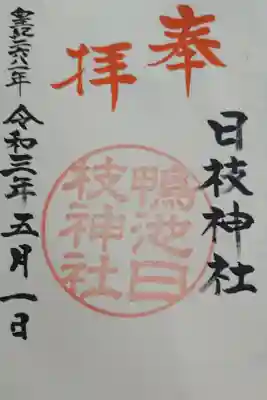 奉拝
日枝神社
鴨池日
枝神社
皇紀二六八一年
令和三年五月一日